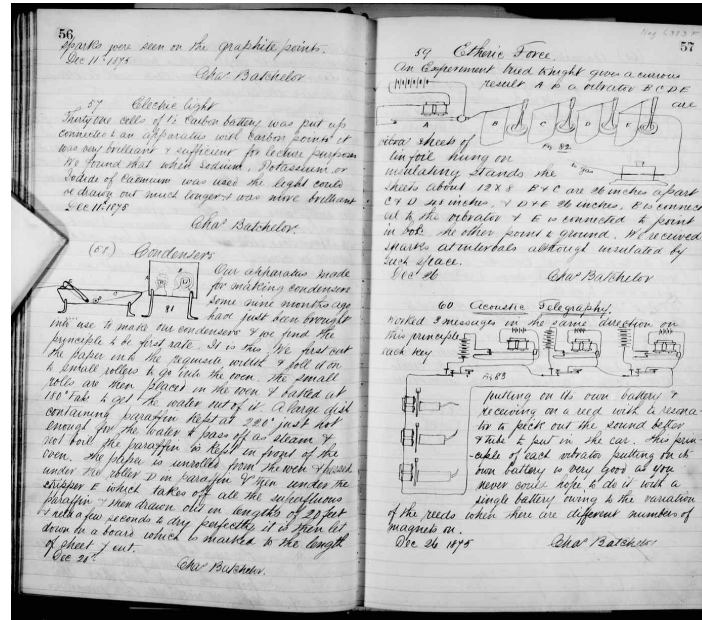 56
sparks were seen on the graphite points.
Dec 11th 1875
Chas Batchelor
57 Electric light
Thirty one cells of 1½ Carbon battery was put up &
connected to an apparatus with Carbon points it
was very brilliant & sufficient for lecture purposes
We found that when Sodium, Potassium, or
Iodide of Cadmium was used the light could
be drawn out much longer & was more brilliant
Dec 11th 1875
Chas Batchelor.
(58) Condensers
Our apparatus made
for making condensers
some nine months ago
have just been brought
81
into use to make our condensers & we find the
principle to be first rate. It is this, We first cut
the paper into the requisite width & roll it on
to small rollers to go into the oven. The small
rolls are then placed in the oven & baked at
180° Fah to get the water out of it. A large dish
containing paraffin kept at 220° just hot
enough for the water to pass off as steam &
not boil the paraffin is kept in front of the
oven. The paper is unrolled from the oven & passed
under the roller D in paraffin & then under the
scrapper E which takes off all the superfluous
paraffin & then drawn out in lengths of 20 feet
& with a few seconds to dry perfectly it is then let
down on a board which is marked to the length
of sheet & cut.
Dec 20th
Chas Batchelor.
57
59 Etheric Force
An Experiment tried tonight gives a curious
result A is a vibrator B C D E
are
B A B C D E
Fig 82
to gas
sheets of
tinfoil hung on
insulating stands the
sheets about 12 X 8 B & C are 26 inches apart
C & D 48 inches, & D & E 26 inches, B is connect
ed to the vibrator & E is connected to point
in box the other point to ground. We received
sparks at intervals although insulated by
such space.
Dec 26
Chas Batchelor
60 Acoustic Telegraphy.
Worked 3 messages in the same direction on
this principle
each key
Fig 83
putting on its own battery &
receiving on a reed with a resona-
tor to pick out the sound better
& tube to put in the ear. This prin-
ciple of each vibrator putting on its
own battery is very good as you
never could hope to do it with a
single battery owing to the variation
of the reeds when there are different numbers of
magnets on.
Dec 26 1875
Chas Batchelor